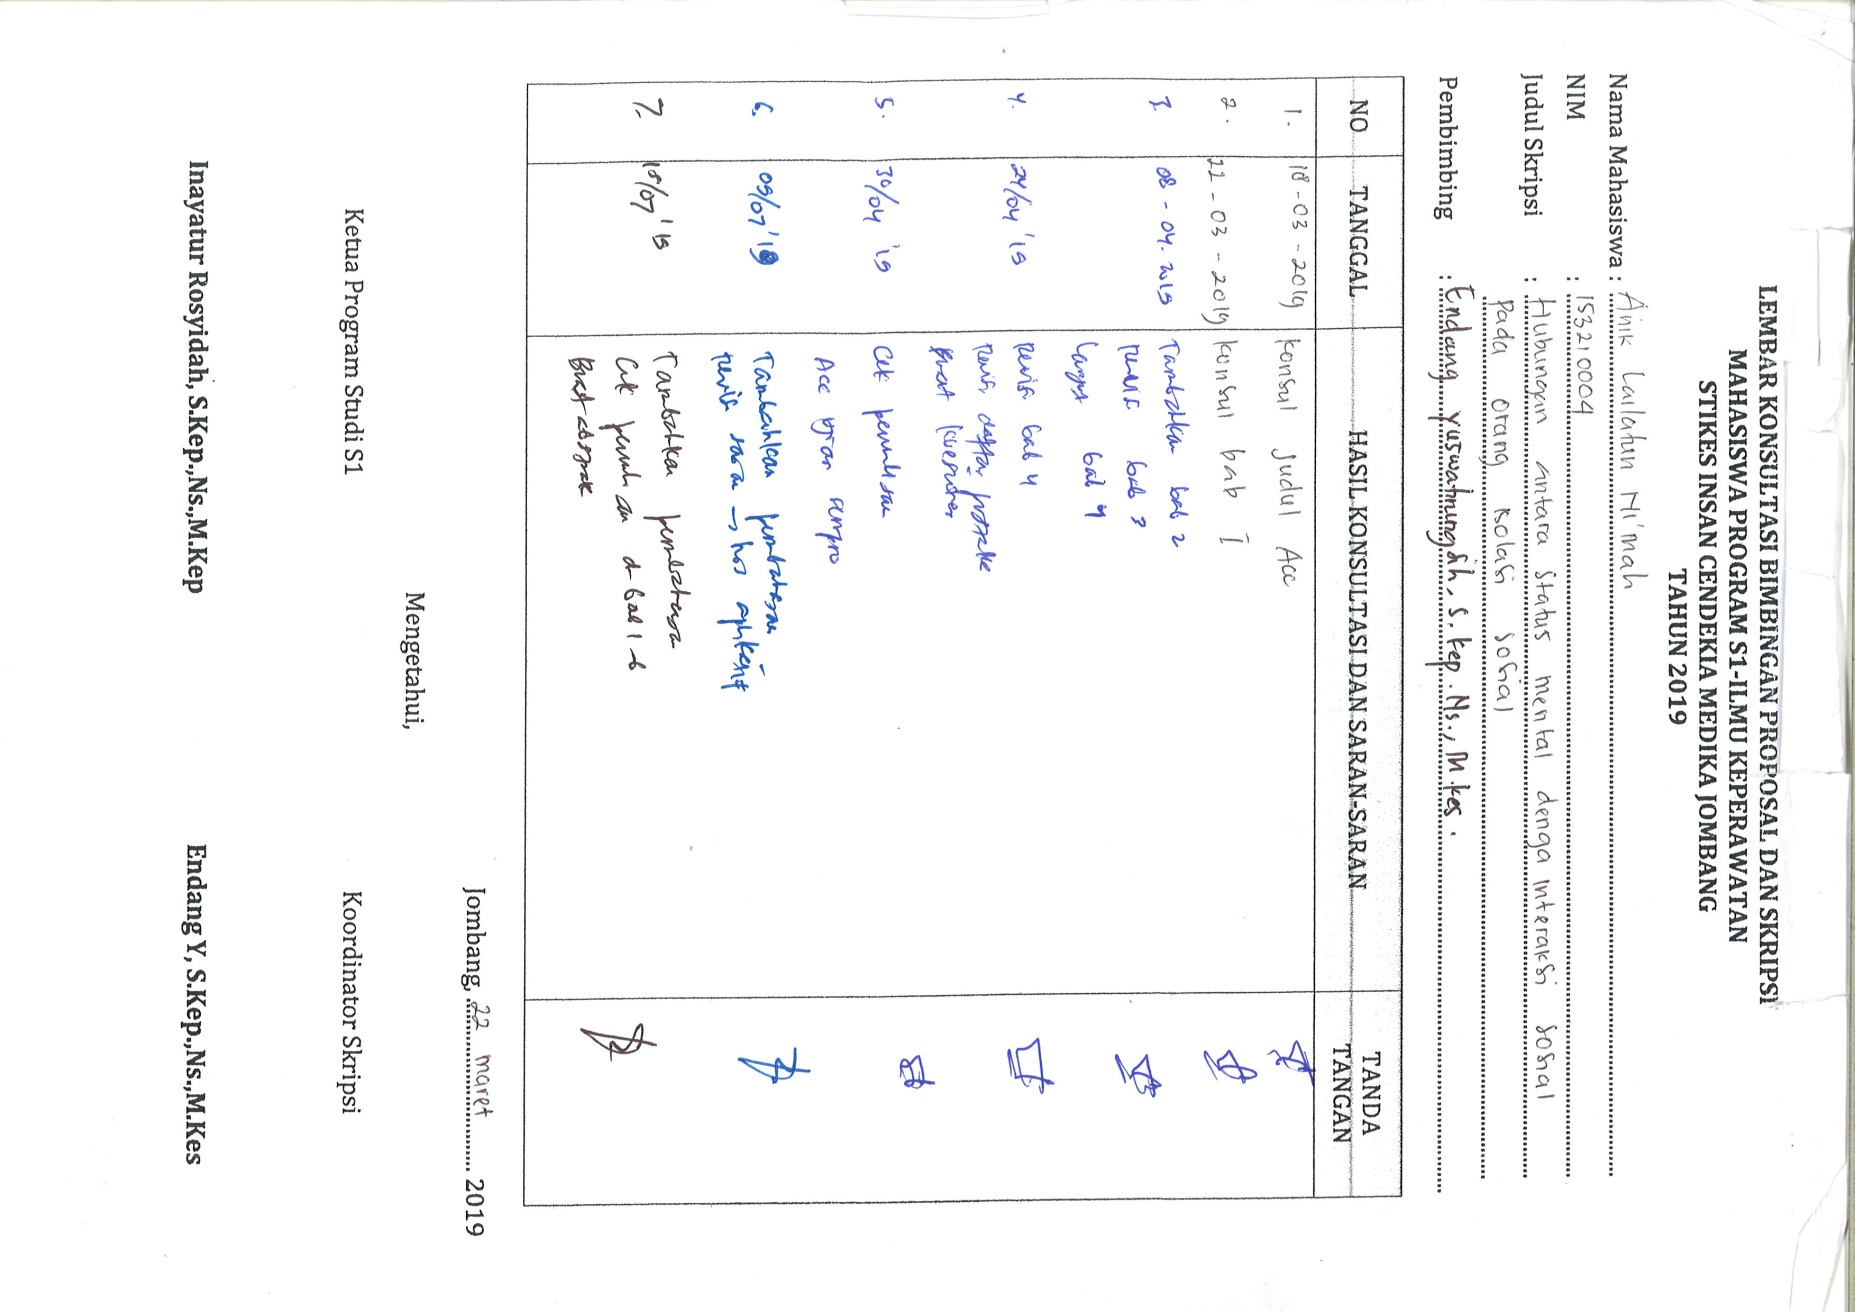 LEMBAR KONSULTASI BIMBINGAN PROPOSAL DAN SKRIPSI
MAHASISWA PROGRAM S1-ILMU KEPERAWATAN
STIKES INSAN CENDEKIA MEDIKA JOMBANG
TAHUN 2019
Nama Mahasiswa : Ainik Lailatun Ni'mah
NIM : 153210004
Judul Skripsi : Hubungan antara status mental denga interaksi sosial
Pada orang isolasi sosial
Pembimbing : Endang yuswatiningsih, S.Kep.Ns., M.kes.
NO TANGGAL HASIL KONSULTASI DAN SARAN-SARAN TANDA TANGAN
1. 18-03-2019 konsul judul Acc
2. 22-03-2019 konsul bab I
3. 08-04-2019 Tambahkan bab 2
revisi bab 3
Lanjut bab 4
4. 24/04 '19 revisi bab 4
revisi daftar pustaka
Buat kuesioner
5. 30/04 '19 Cek penulisan
Acc ujian sempro
6. 09/07 '19 Tambahkan pembahasan
revisi saran → hrs aplikatif
7. 18/07 '19 Tambahkan pembahasan
Cek penulisan d bab 1-6
Buat abstrak
Jombang, 22 maret 2019
Mengetahui,
Ketua Program Studi S1 Koordinator Skripsi
Inayatur Rosyidah, S.Kep.,Ns.,M.Kep Endang Y, S.Kep.,Ns.,M.Kes